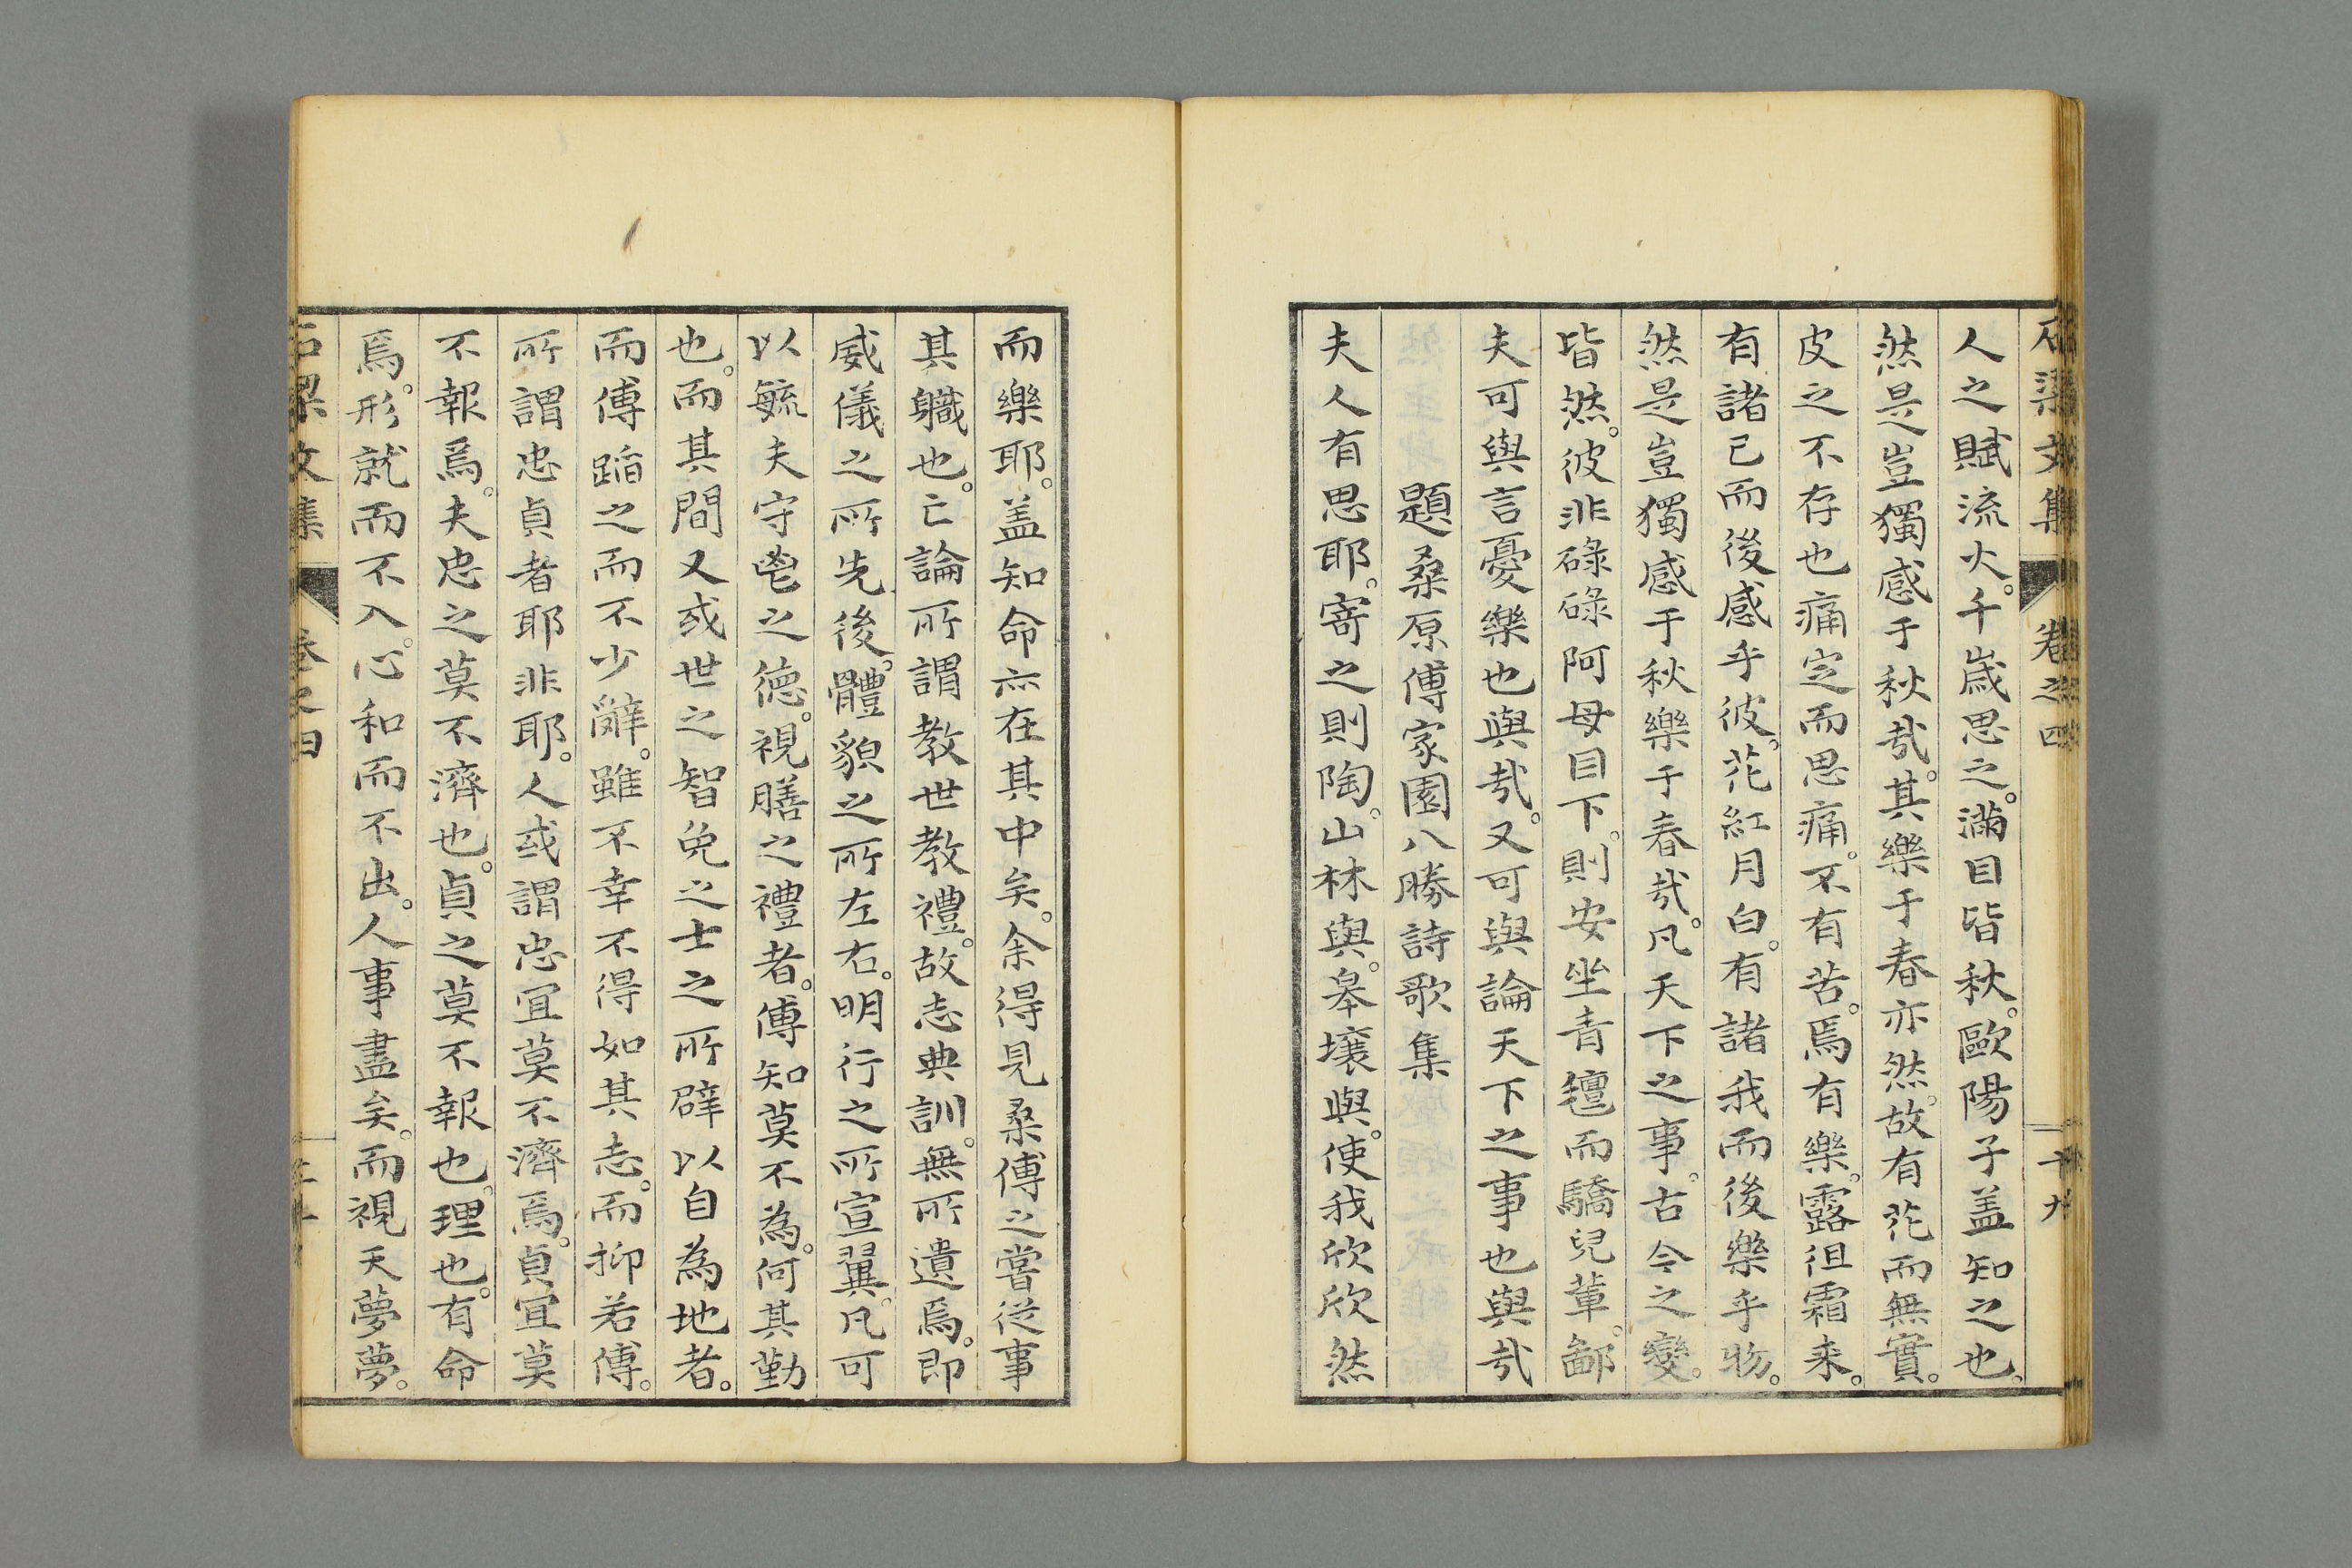 石梁文集 卷之四 十九
人之賦流火。千嵗思之。滿目皆秋。歐陽子盖知之也。
然是豈獨感于秋㢤。其樂于春亦然。故有花而無實。
皮之不存也痛定而思痛。不有苦。焉有樂。露徂霜来。
有諸已而後感乎彼。花紅月白。有諸我而後樂乎物。
然是豈獨感于秋樂于春㢤。凡天下之事。古今之變。
皆然。彼非碌碌阿母目下。則安坐青氊而驕兒軰。鄙
夫可與言憂樂也與㢤。又可與論天下之事也與㢤
題桑原傅家園八勝詩歌集
夫人有思耶。寄之則陶。山林與。皋壌與。使我欣欣然
而樂耶。盖知命亦在其中矣。余得見桑傅之嘗従事
其軄也。亡論所謂教世教禮。故志典訓。無所遺焉。即
威儀之所先後。體貌之所左右。明行之所宣翼。凡可
以毓夫守鬯之徳。視膳之禮者。傅知莫不為。何其勤
也。而其間又或世之智免之士之所辟以自為地者。
而傅蹈之而不少辭。雖不幸不得如其志。而抑若傅。
所謂忠貞者耶非耶。人或謂忠宜莫不濟焉。貞宜莫
不報焉。夫忠之莫不濟也。貞之莫不報也。理也。有命
焉。形就而不入。心和而不出。人事盡矣。而視天夢夢。
石梁文集 卷之四